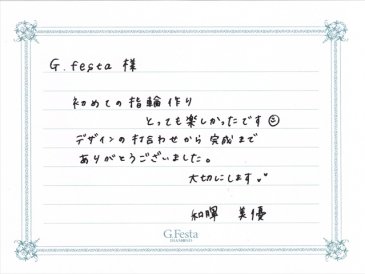 G.festa 様
初めての指輪作り
とっても楽しかったです☺
デザインの打合わせから完成まで
ありがとうございました。
大切にします♥
和暉 美優
G.Festa